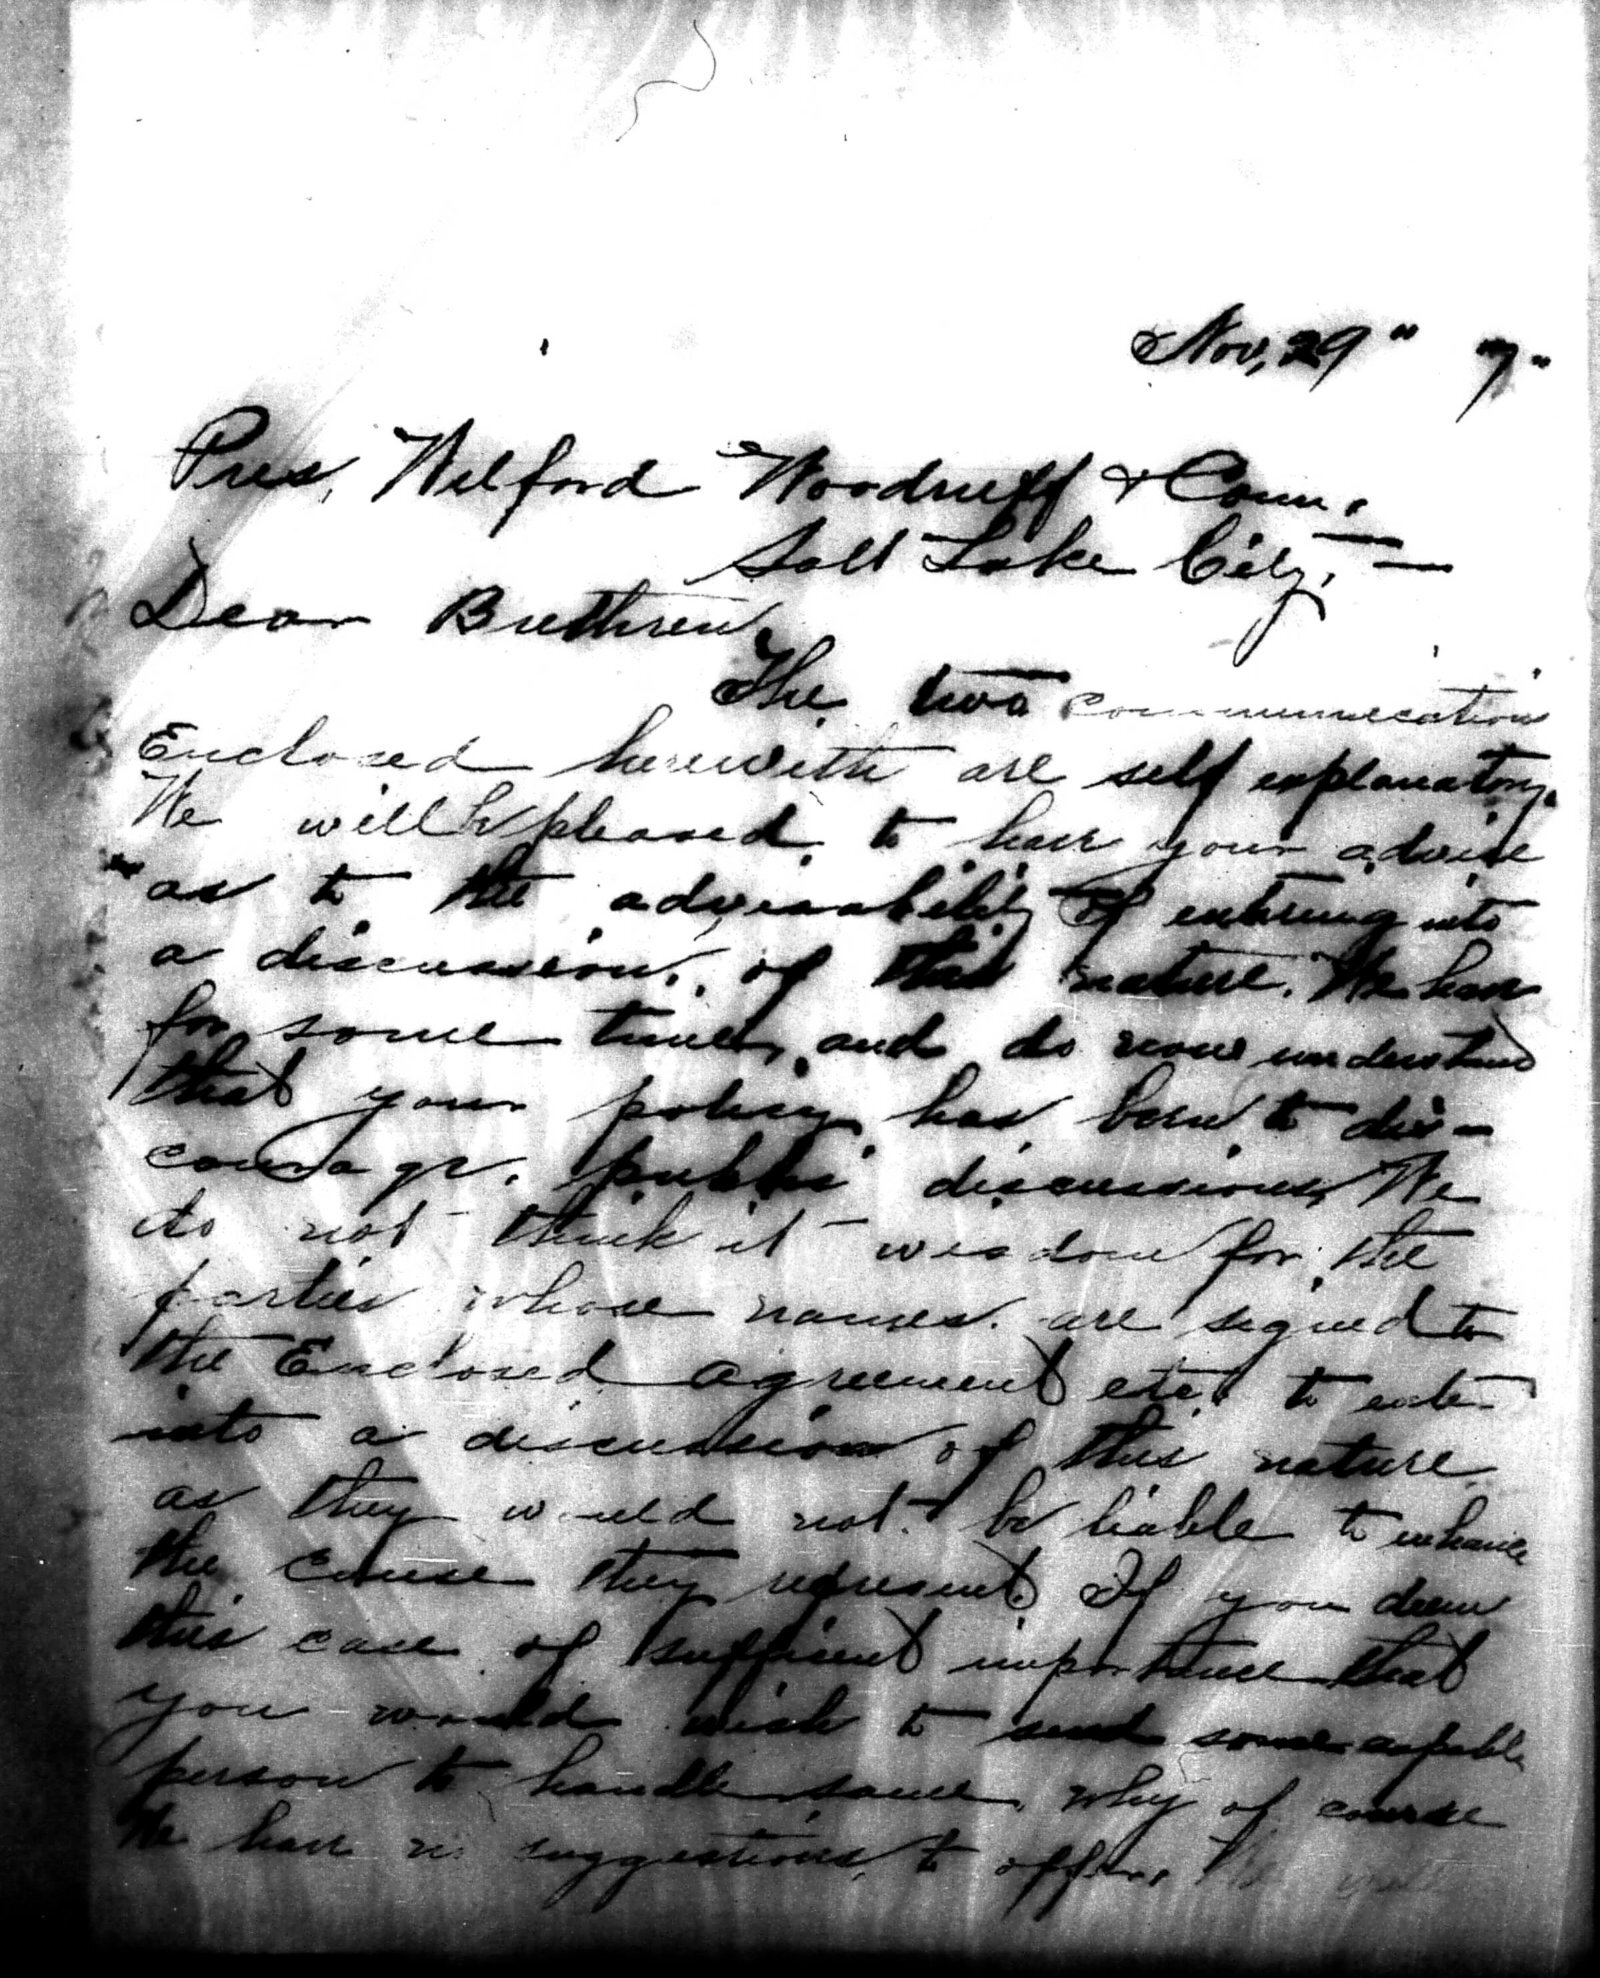 Nov, 29" 7"
Pres, Wilford Woodruff & Coun.
Salt Lake City,
Dear Brethren,
The two communications
Enclosed herewith are self explanatory.
We will be pleased to have your advise
as to the advisability of entering into
a discussion, of this nature. We have
for some time, and do now understand
that your policy has been to dis-
courage public discussions, We
do not think it wisdom for the
parties whose names are signed to
the Enclosed agreement etc. to enter
into a discussion of this nature
as they would not be liable to enhance
the cause they represent. If you deem
this case of sufficient importance that
you would wish to send some capable
person to handle same, why of course
We have no suggestions to offer.